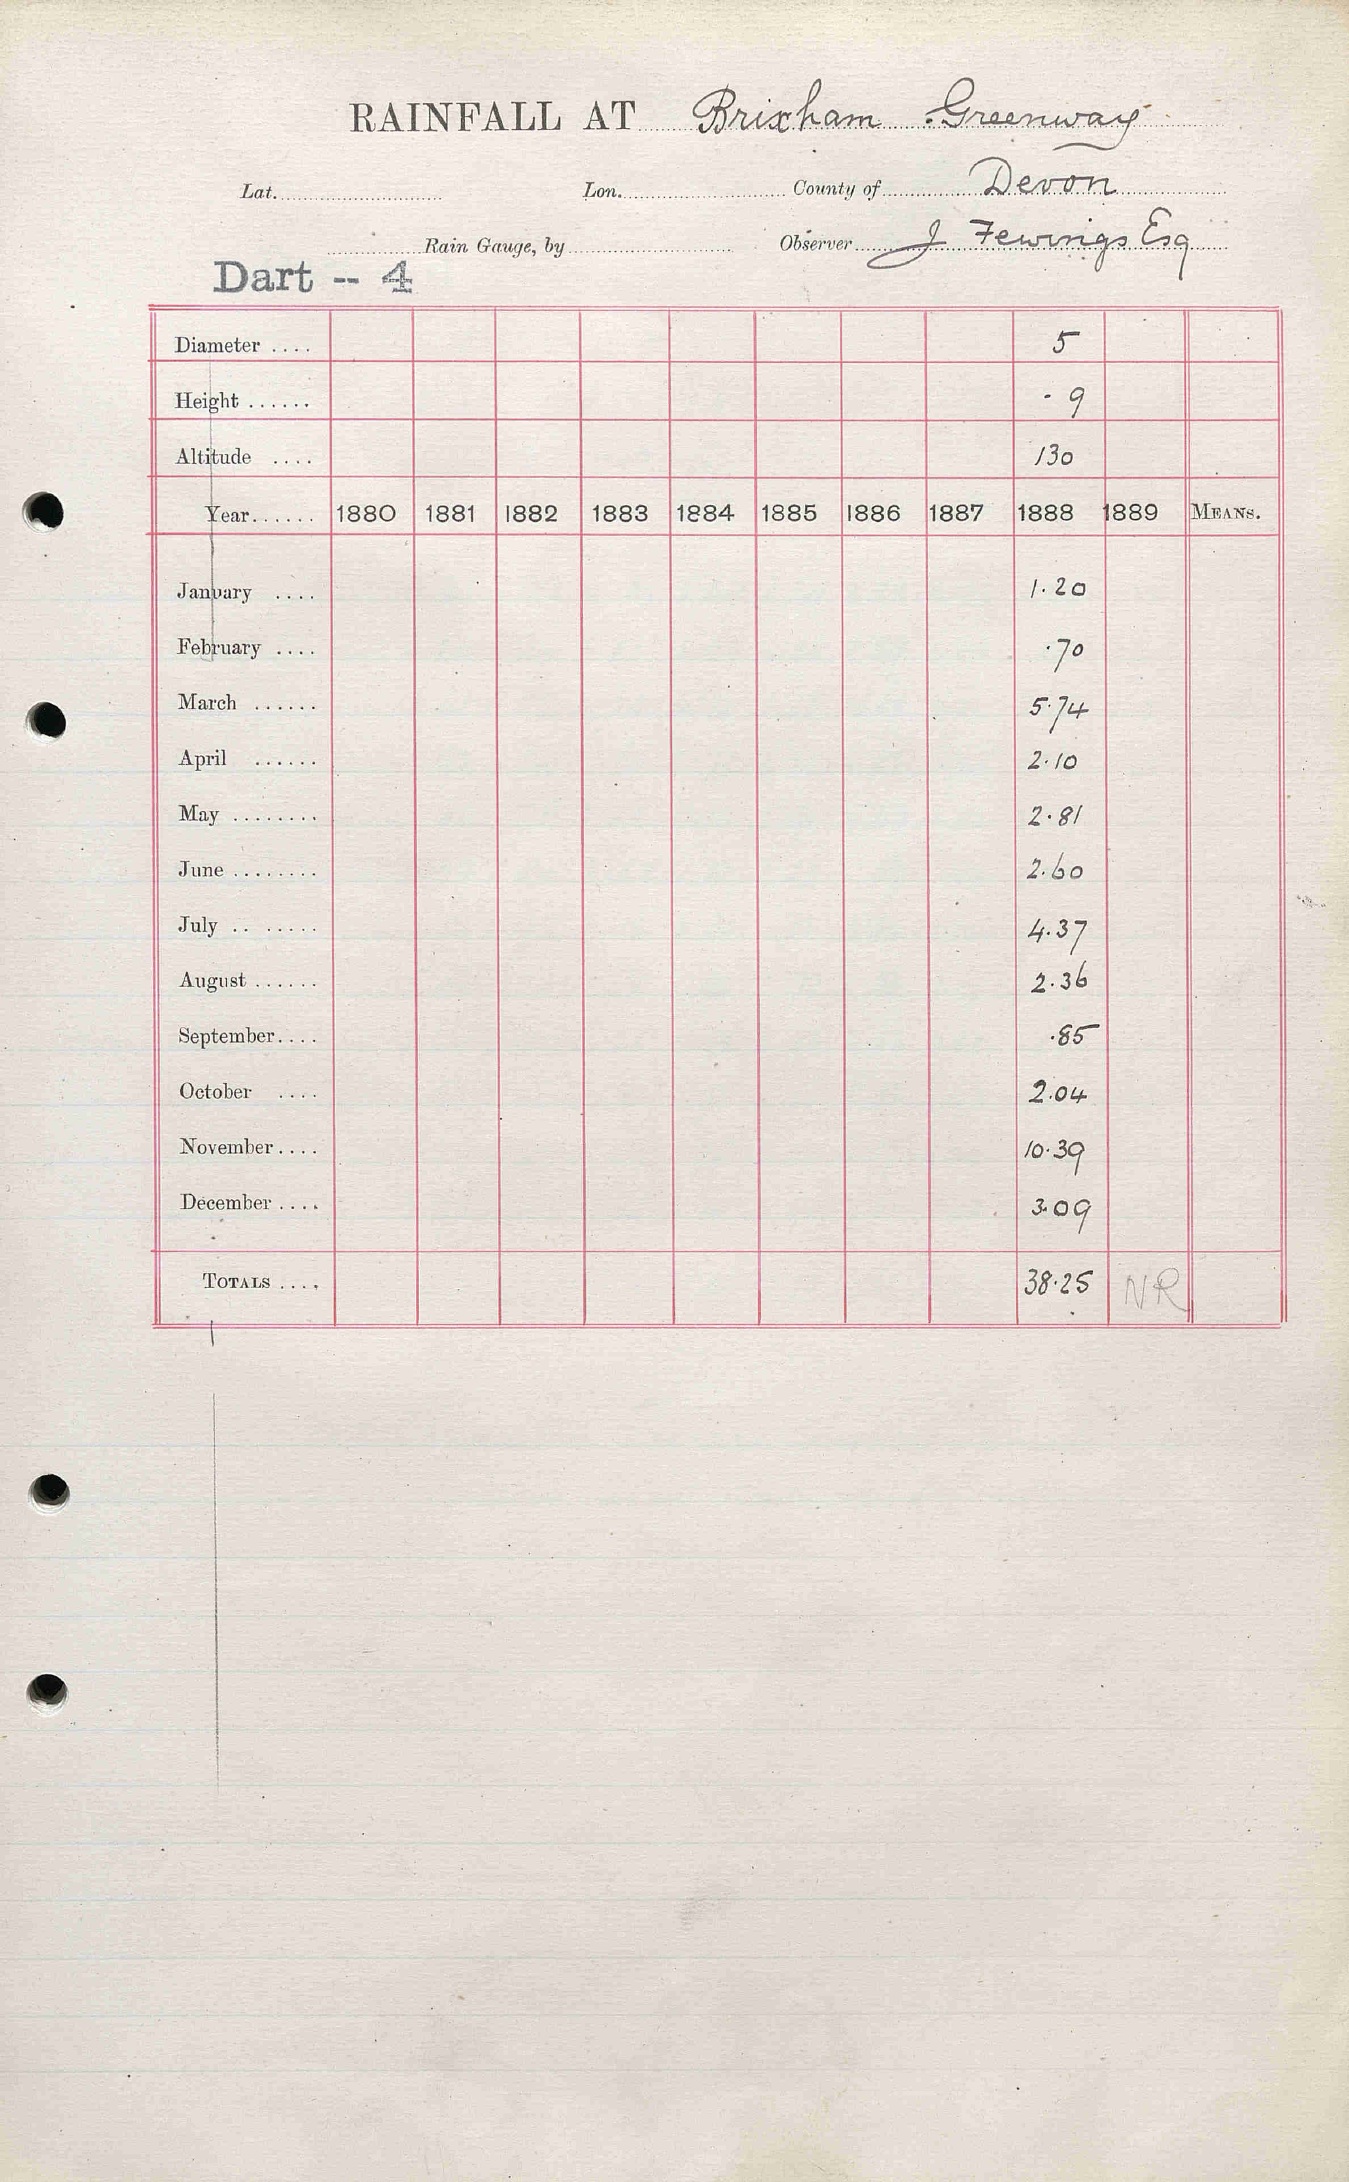 RAINFALL AT Brixham Greenway
Lat. Lon. County of Devon
Rain Gauge, by Observer J Fewings Esq
Dart -- 4
Diameter .... 5
Height ...... . 9
Altitude .... 130
Year...... 1880 1881 1882 1883 1884 1885 1886 1887 1888 1889 MEANS.
January .... 1.20
February .... .70
March ...... 5.74
April ...... 2.10
May ........ 2.81
June ........ 2.60
July .. ...... 4.37
August ...... 2.36
September.... .85
October .... 2.04
November.... 10.39
December .... 3.09
TOTALS .... 38.25 NR